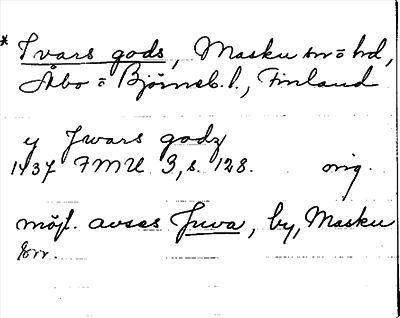 * Ivars gods, Masku sn = hd,
Åbo = Björneb. l., Finland
y Jwars godz
1437 FMU 3, s. 128. orig.
möjl. avses Juva, by, Masku
sn.